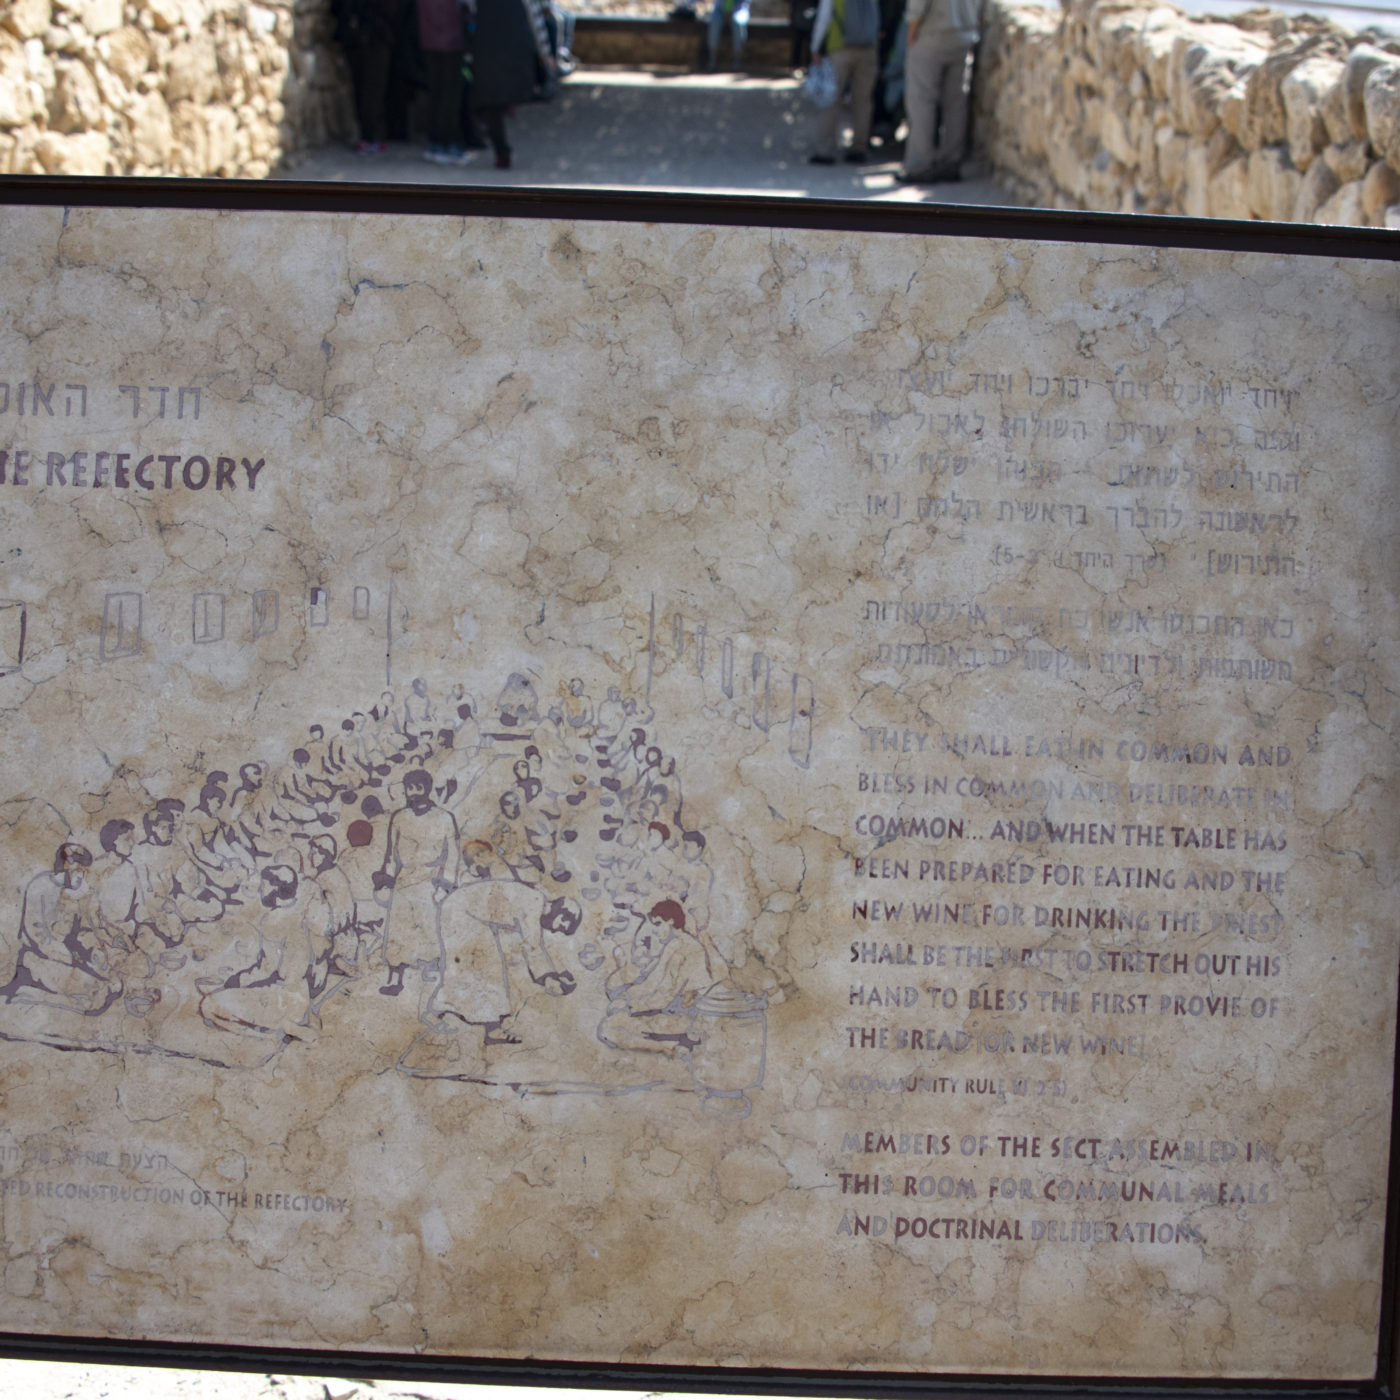 חדר האוכ
HE REFECTORY
ויחד יואכלו ויחד יברכו ויחד יועצו
והיה כיא יערוכו השולחן לאכול או
התירוש לשתות הכוהן ישלח ידו
לראשונה להברך בראשית הלחם [או
התירוש]" (סרך היחד
כאן התכנסו אנשי כת לסעודות
משותפות ולדיונים
THEY SHALL EAT IN COMMON AND
BLESS IN COMMON AND DELIBERATE IN
COMMON... AND WHEN THE TABLE HAS
BEEN PREPARED FOR EATING AND THE
NEW WINE FOR DRINKING THE PRIEST
SHALL BE THE FIRST TO STRETCH OUT HIS
HAND TO BLESS THE FIRST PROVIE OF
THE BREAD [OR NEW WINE]
(COMMUNITY RULE
MEMBERS OF THE SECT ASSEMBLED IN
THIS ROOM FOR COMMUNAL MEALS
AND DOCTRINAL DELIBERATIONS.
הצעת שחזור של
ED RECONSTRUCTION OF THE REFECTORY